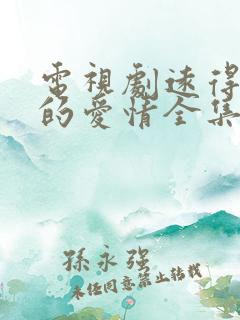 電視劇速得
的愛情全集
孫永強
未任同意禁止轉載